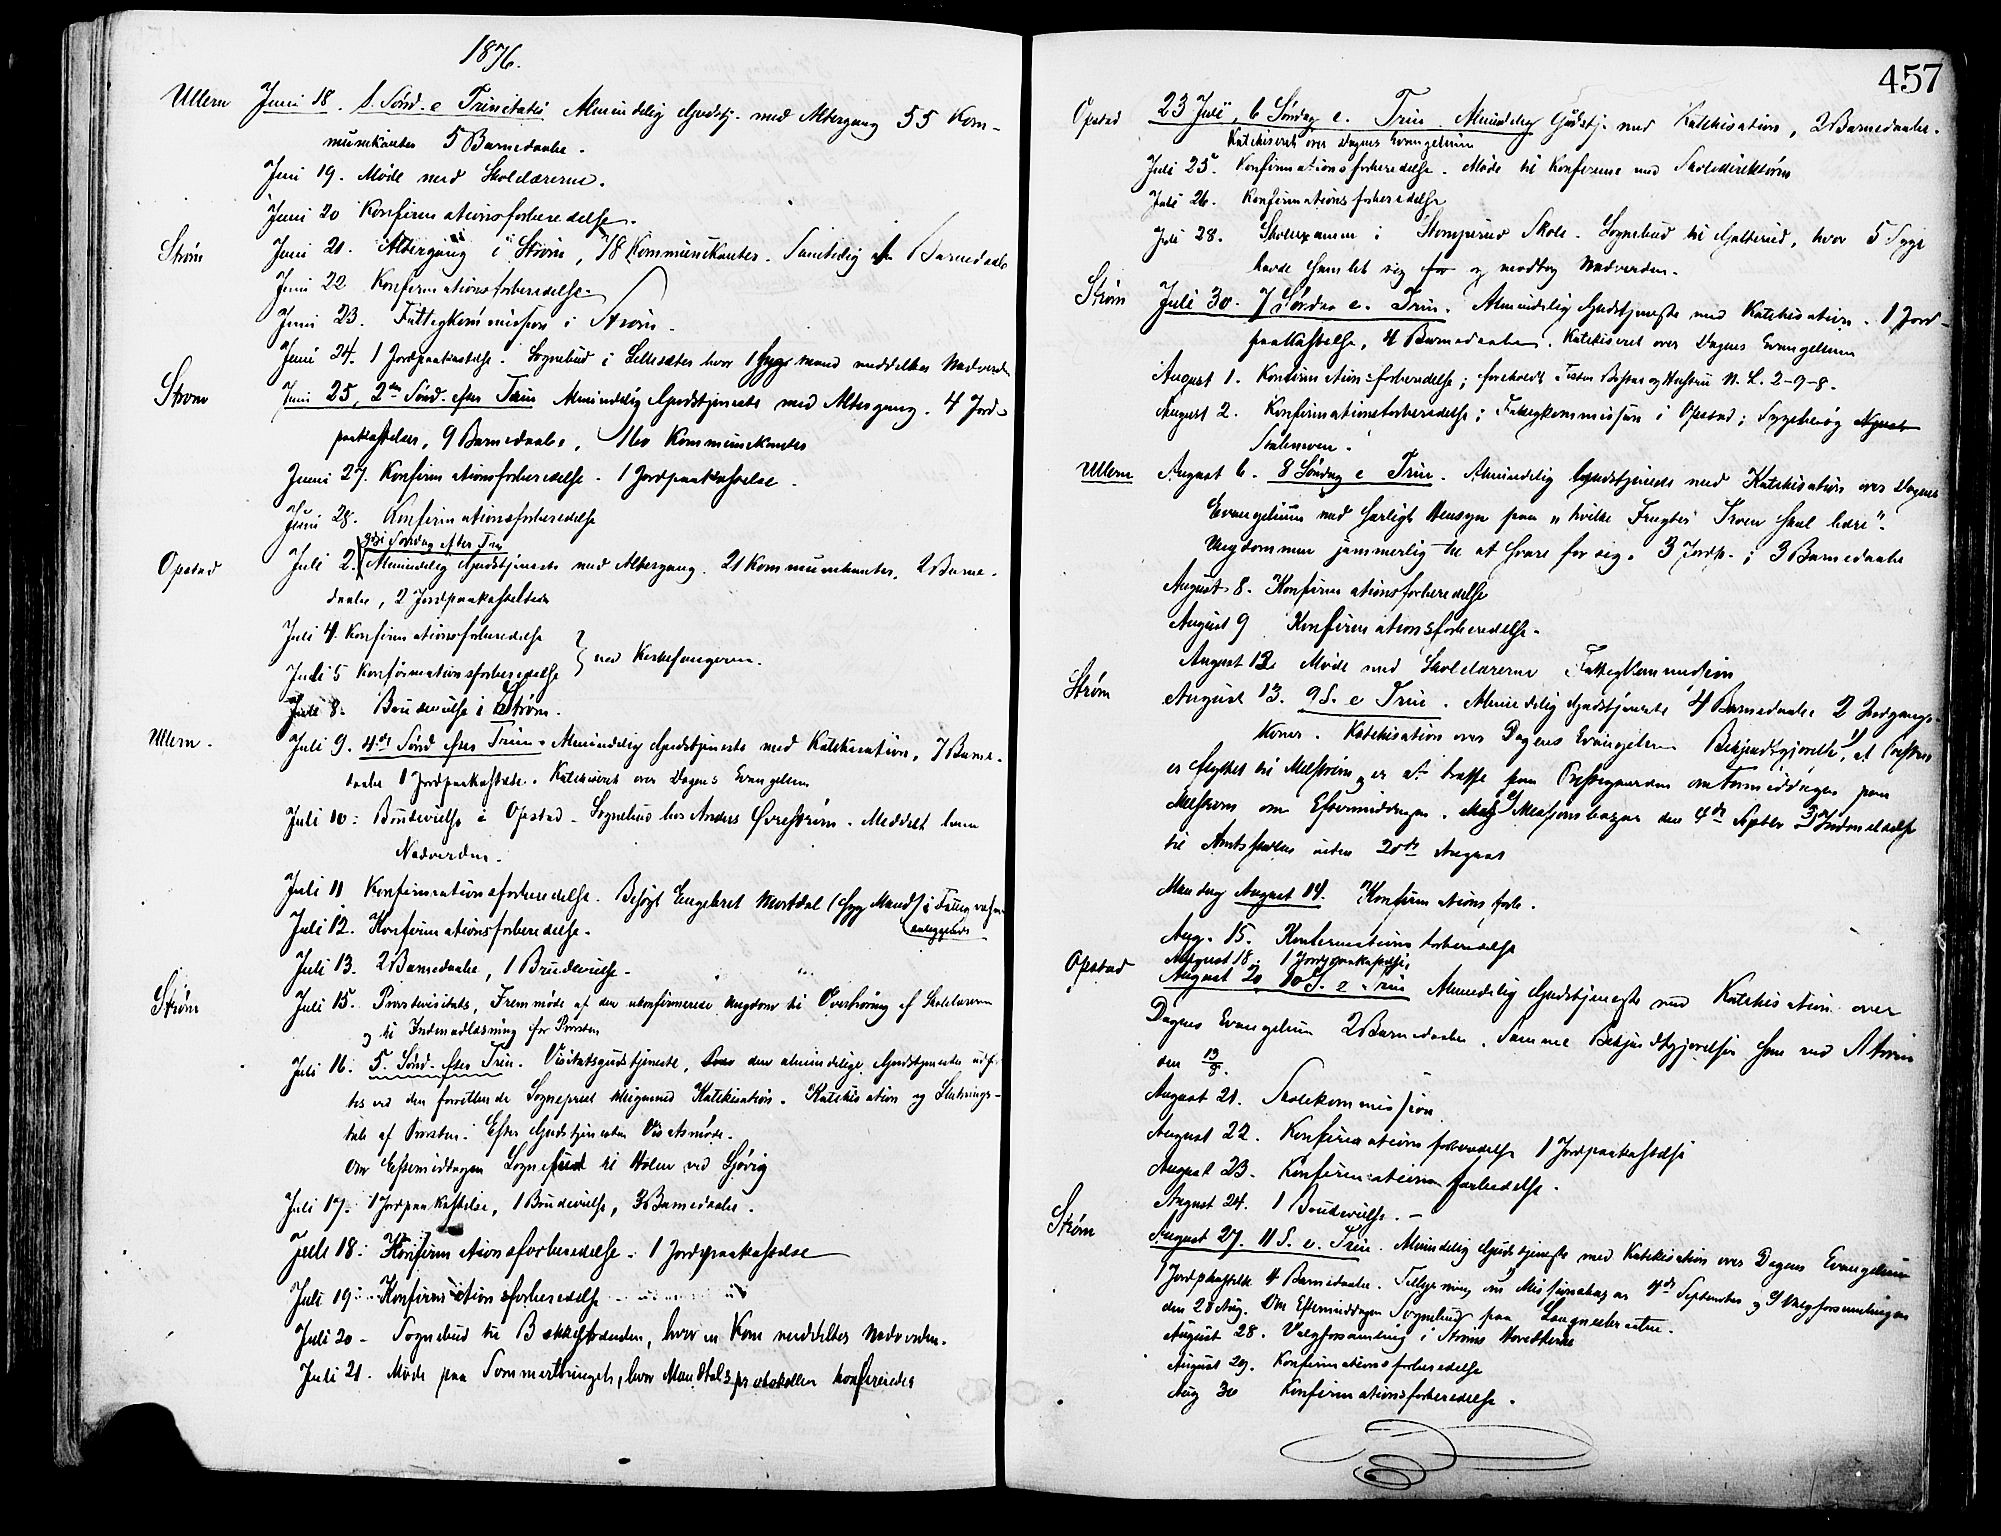 1876.
Ullern Juni 18. 1. Sønd. e Trinitatis Almindelig Gudstj. med Altergang 55 Kom-
munikanter 5 Barnedaabe.
Juni 19. Møde med Skolelærerne.
Juni 20 Konfirmationsforberedelse.
Strøm Juni 21. Altergang i Strøm, 78 Kommunikanter. Samtidig Barnedaab
Juni 22 Konfirmationsforberedelse.
Juni 23. Fattigkommission i Strøm.
Juni 24. 1 Jordpaakastelse. Sognebud i hvor 1 syg mand meddeltes Nadverden
Strøm Juni 25, 2den Sønd. efter Trin Almindelig Gudstjeneste med Altergang. 4 Jord-
paakastelser, 9 Barnedaabe, 160 Kommunikanter
Juni 27. Konfirmationsforberedelse. 1 Jordpaakastelse.
Juni 28. Konfirmationsforberedelse
3die Søndag efter Trin
Opstad Juli 2. Almindelig Gudstjeneste med Altergang. 21 Kommunikanter. 2 Barne-
daabe, 2 Jordpaakastelser
Juli 4. Konfirmationsforberedelse
Juli 5 Konfirmationsforberedelse } ved Kirkesangeren.
Juli 8. Brudevielse i Strøm.
Ullern. Juli 9. 4de Sønd efter Trin. Almindelig Gudstjeneste med Katekisation, 7 Barne-
daabe 1 Jordpaakastelse. Katekiseret over Dagens Evangelium
Juli 10. Brudevielse i Opstad. Sognebud hos Anders Øvrestrøm. Meddelt ham
Nadverden.
Juli 11 Konfirmationsforberedelse. Besøgt Engebret Mortdal (syg Mand) i
Juli 12. Konfirmationsforberedelse.
Juli 13. 2 Barnedaabe, 1 Brudevielse.
Strøm Juli 15. Provstevisitats, Fremmøde af den ukonfirmerede Ungdom til Overhøring af Skolelæreren
og til Indenadlæsning for Provsten
Juli 16. 5. Sønd. efter Trin. Visitatsgudstjeneste, den almindelige Gudstjeneste
den forrettende Sogneprest Katekisation. Katekisation og Slutnings-
tale af Provsten. Efter Gudstjenesten Visitatsmøde.
Om Eftermiddagen Sognebud til Holen ved Gjørig
Juli 17. 1 Jordpaakastelse, 1 Brudevielse, 3 Barnedaabe.
Juli 18. Konfirmationsforberedelse. 1 Jordpaakastelse
Juli 19. Konfirmationsforberedelse
Juli 20 - Sognebud til hvor en Kone meddeltes Nadverden.
Juli 21. Møde paa hvor Mandtalsprotokollen konfereredes
457
Opstad 23 Juli, 6 Søndag e. Trin. Almindelig Gudstj. med Katekisation, 2 Barnedaabe.
Katekiseret over Dagens Evangelium
Juli 25. Konfirmationsforberedelse. Møde til Konferense med Skoledirektøren
Juli 26. Konfirmationsforberedelse
Juli 28. Skoleexamen i Stomperud Skole. Sognebud til Galterud, hvor 5 Syge
havde samlet sig for og modtog Nadverden.
Strøm Juli 30. 7 Søndag e. Trin. Almindelig Gudstjeneste med Katekisation. 1 Jord-
paakastelse, 4 Barnedaabe. Katekiseret over Dagens Evangelium
August 1. Konfirmationsforberedelse; foreholdt og Hustru N. L. 2-9-8.
August 2. Konfirmationsforberedelse; Fattigkommission i Opstad; Sygebesøg

Ullern August 6. 8 Søndag e Trin. Almindelig Gudstjeneste med Katekisation over Dagens
Evangelium med særligt Hensyn paa "hvilke Frugter Troen skal bære".
Ungdommen jammerlig til at svare for sig. 3 Jordp.; 3 Barnedaabe
August 8. Konfirmationsforberedelse
August 9 Konfirmationsforberedelse.
August 12 Møde med Skolelærerne Fattigkommission
Strøm August 13. 9 S. e Trin. Almindelig Gudstjeneste 4 Barnedaabe 2 Indgangs-
koner. Katekisation over Dagens Evangelium Bekjendtgjørelse 1) at Presten
er flyttet til Melstrøm og er at træffe paa Prestegaarden om Formiddagen paa
Melstrøm om Eftermiddagen. 2) Missionsbazar den 4de Septbr 3) Indmeldelse
til Amtsskolen inden 20de August
Mandag August 14. Konfirmationsforb.
Aug. 15. Konfirmationsforberedelse
August 18. 1 Jordpaakastelse.
Opstad August 20 10 S. e Trin Almindelig Gudstjeneste med Katekisation over
Dagens Evangelium 2 Barnedaabe. Samme Bekjendtgjørelser som ved Strøm
den 13/8.
August 21. Skolekommission.
August 22. Konfirmationsforberedelse 1 Jordpaakastelse
August 23. Konfirmationsforberedelse.
August 24. 1 Brudevielse. -
Strøm August 27. 11 S. e. Trin. Almindelig Gudstjeneste med Katekisation over Dagens Evangelium
1 Jordpkastelse 4 Barnedaabe. Tillysning om Missionsbazar 4de September og Valgforsamlingen
den 28 Aug. Om Eftermiddagen Sognebud paa
August 28. Valgforsamling i Strøms Hovedkirke
August 29. Konfirmationsforberedelse
Aug 30 Konfirmationsforberedelse.